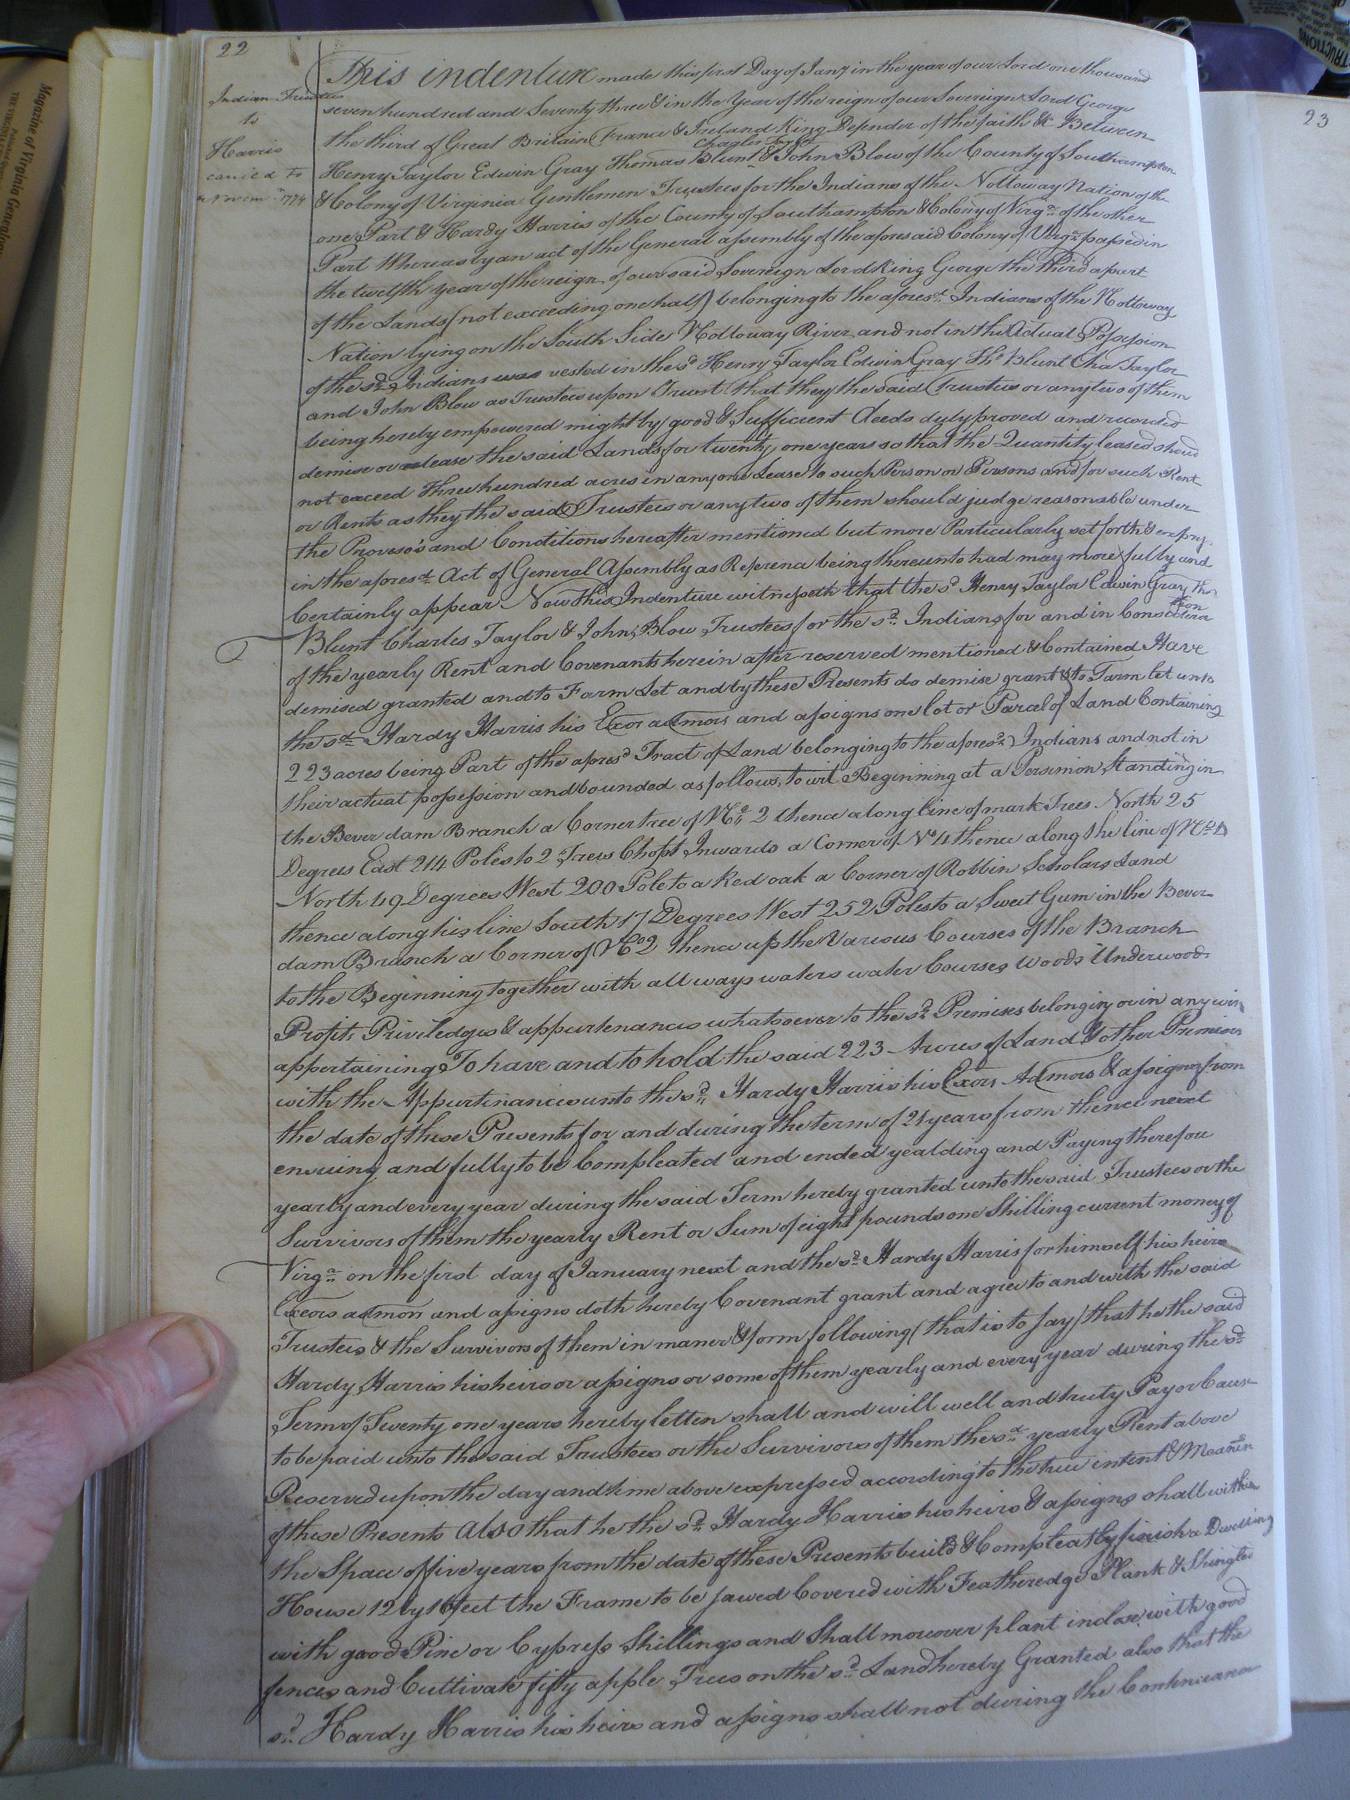 22
23
Indian Trustees
to
Harris
This indenture made this first Day of Janry in the year of our Lord one thousand
seven hundred and Seventy three & in the Year of the reign of our Sovereign Lord George
the third of Great Britain France & Ireland King Defender of the faith &c Between
Charles Taylor
Henry Taylor Edwin Gray Thomas Blunt & John Blow of the County of Southampton
& Colony of Virginia Gentlemen Trustees for the Indians of the Nottoway Nation of the
one Part & Hardy Harris of the County of Southampton & Colony of Virga. of the other
Part Whereas by an act of the General assembly of the aforesaid Colony of Virga. passed in
the twelfth year of the reign of our said Sovereign Lord King George the third a part
of the Lands (not exceeding one half) belonging to the aforesd. Indians of the Nottoway
Nation lying on the South Side Nottoway River and not in the Actual Possession
of the sd. Indians was vested in the sd. Henry Taylor Edwin Gray Thos Blunt Cha Taylor
and John Blow as Trustees upon Trust that they the said Trustees or any two of them
being hereby empowered might by good & Sufficient deeds duly proved and recorded
demise or lease the said Lands for twenty one years so that the Quantity leased shoud
not exceed three hundred acres in any one Lease to such Person or Persons and for such Rent
or Rents as they the said Trustees or any two of them should judge reasonable under
the Proviso's and Conditions hereafter mentioned but more Particularly set forth &
in the aforesd. Act of General Assembly as Referena being thereunto had may more fully and
Certainly appear. Now This Indenture witnesseth that the sd. Henry Taylor Edwin Gray Thos
Blunt Charles Taylor & John Blow Trustees for the sd. Indians for and in Consideration
of the yearly Rent and Covenants herein after reserved mentioned & Contained Have
demised granted and to Farm Let and by these Presents do demise grant & to Farm let unto
the sd. Hardy Harris his Exors admors and assigns one lot or Parcel of Land Containing
223 acres being Part of the aforesd Tract of Land belonging to the aforesd. Indians and not in
their actual possession and bounded as follows, to wit Beginning at a Persimon Standing in
the Bever dam Branch a Corner tree of No. 2 thence along line of mark Trees North 25
Degrees East 214 Poles to 2 Trees Chopt Inwards a Corner of No 4 thence along the line of No 4
North 49 Degrees West 200 Pole to a Red oak a Corner of Robbin Scholars Land
thence along his line South 17 Degrees West 252 Poles to a Sweet Gum in the Bever
dam Branch a Corner of No 2 thence up the Various Courses of the Branch
to the Beginning together with all ways waters water Courses Woods Underwoods
Profits Priviledges & appurtenances whatsoever to the sd. Premises belonging or in any wise
appertaining To have and to hold the said 223 Acres of Land & other Premises
with the Appurtinances unto the sd. Hardy Harris his Exors Admors & assigns from
the date of these Presents for and during the term of 21 years from thence next
ensuing and fully to be Compleated and ended yealding and Paying therefore
yearly and every year during the said Term hereby granted unto the said Trustees or the
Survivors of them the yearly Rent or Sum of eight pounds one Shilling current money of
Virga. on the first day of January next and the sd. Hardy Harris for himself his heirs
Exors admors and assigns doth hereby Covenant grant and agree to and with the said
Trustees & the Survivors of them in maner & form following (that is to say) that he the said
Hardy Harris his heirs or assigns or some of them yearly and every year during the sd.
Term of Twenty one years hereby letten shall and will well and truly Pay or Cause
to be paid unto the said Trustees or the Survivors of them the sd. yearly Rent above
Reserved upon the day and time above expressed according to the true intent & Meanin
of these Presents Also that he the sd. Hardy Harris his heirs & assigns shall within
the Space of five years from the date of these Presents build & Compleatly finish a Dwelling
House 12 by 16 feet the Frame to be sawed Covered with Featheredge Plank & Shingles
with good Pine or Cypress Shillings and Shall moreover plant inclose with good
fences and Cultivate fifty apple Trees on the sd. Land hereby Granted also that the
sd. Hardy Harris his heirs and assigns shall not during the Continuana